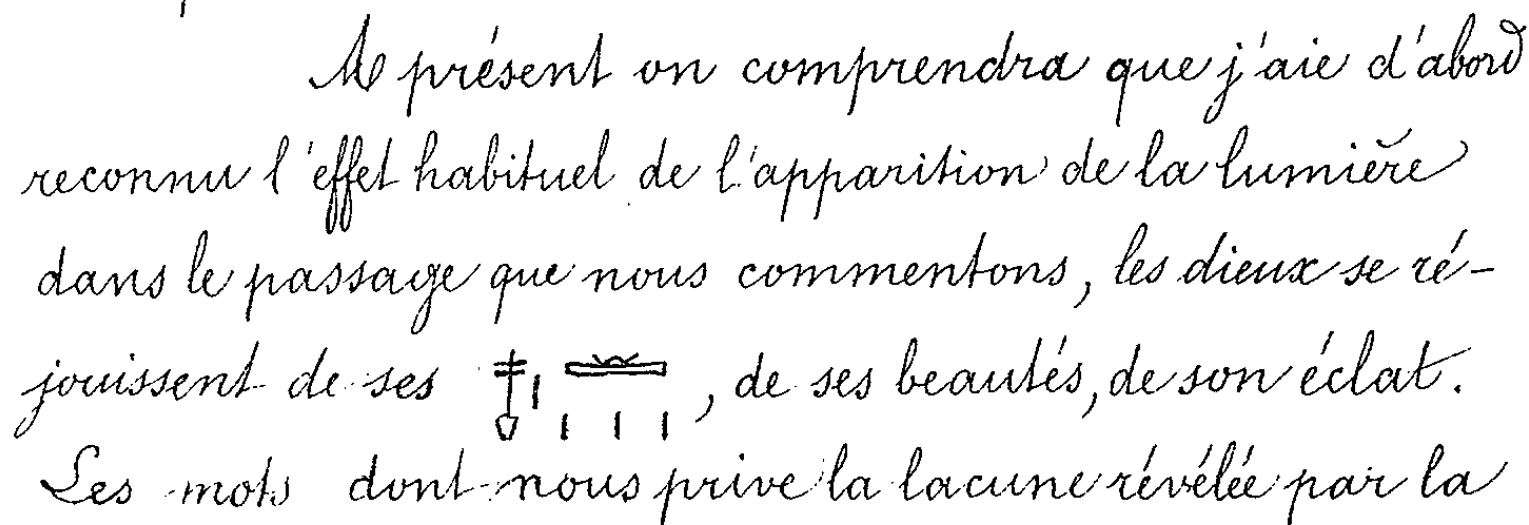 A présent on comprendra que j'aie d'abord
reconnu l'effet habituel de l'apparition de la lumière
dans le passage que nous commentons, les dieux se ré-
jouissent de ses 𓄤𓏤𓏛𓏥, de ses beautés, de son éclat.
Les mots dont nous prive la lacune révélée par la